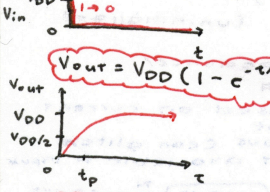 1→0
Vin
0
t
Vout = VDD (1 - e^-t/
Vout
VDD
VDD/2
0
tp
τ